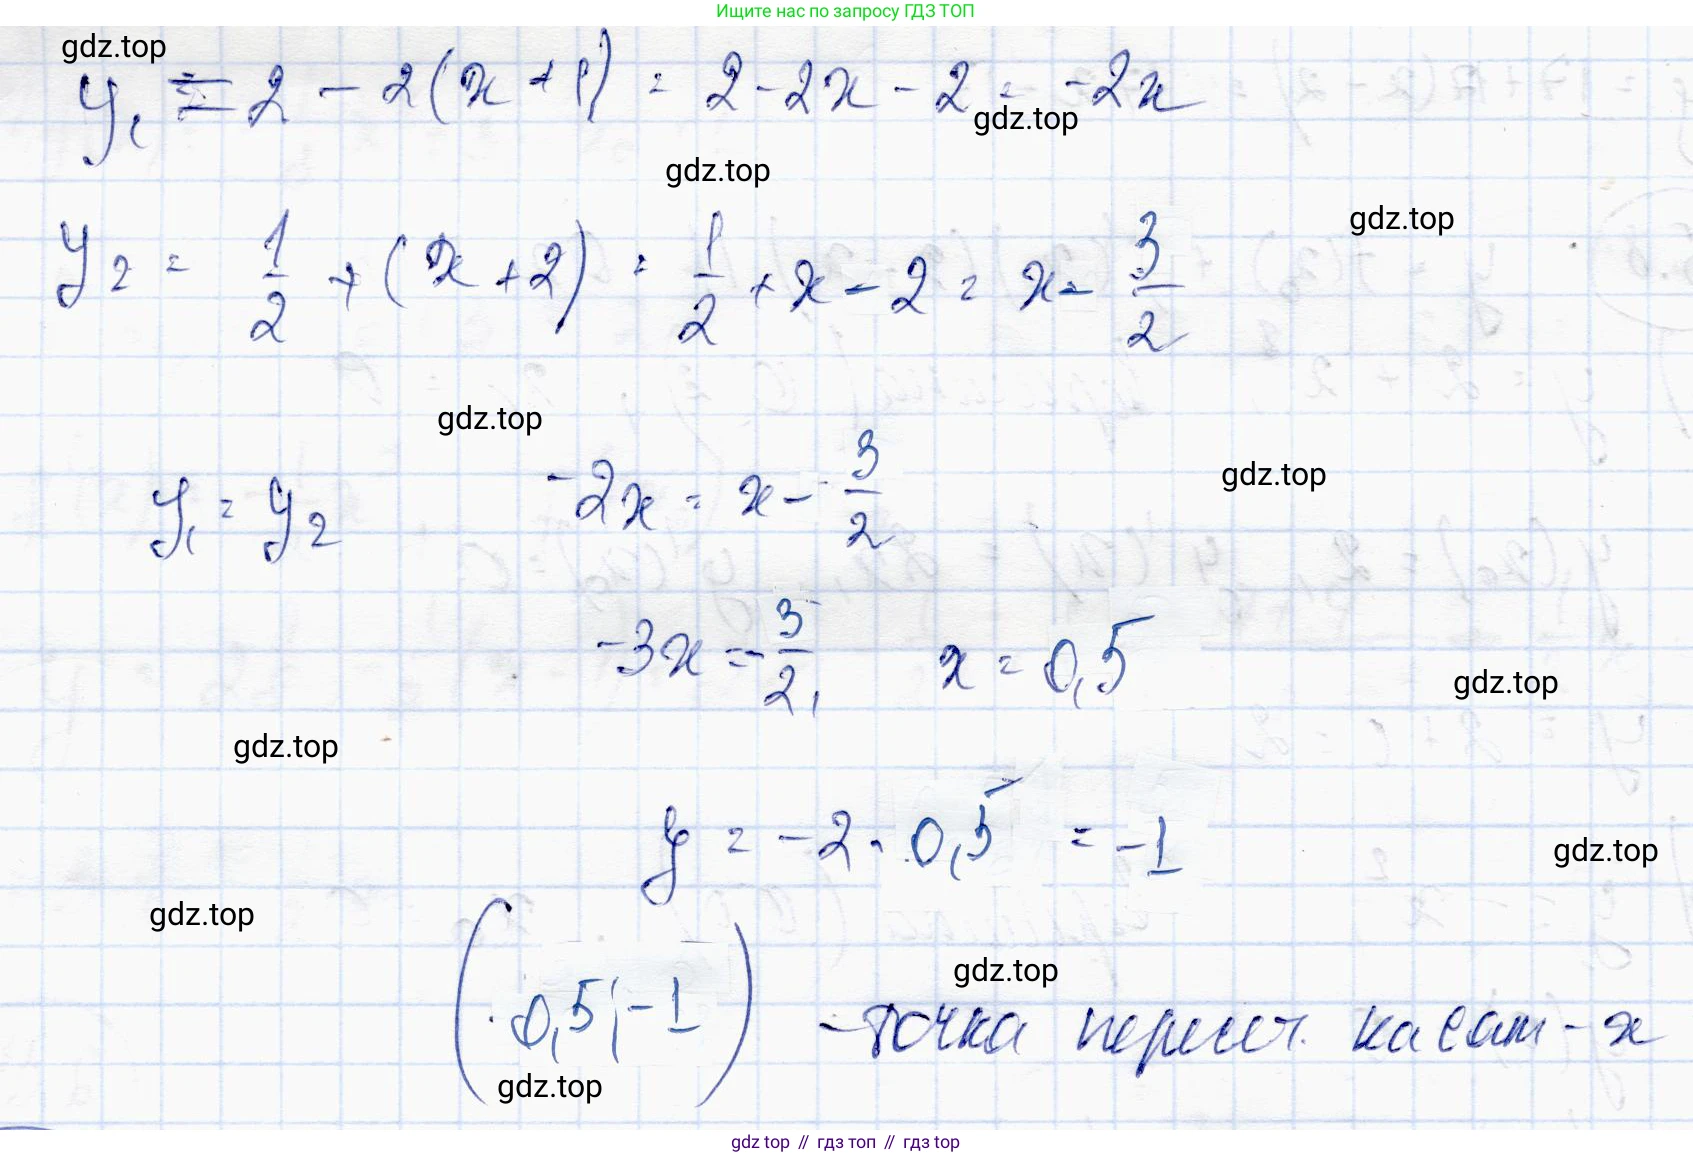 Ищите нас по запросу ГДЗ ТОП
gdz.top
y₁ = 2 - 2(x + 1) = 2 - 2x - 2 = -2x
gdz.top
gdz.top
gdz.top
y₂ = 1/2 + (x + 2) = 1/2 + x - 2 = x - 3/2
gdz.top
gdz.top
y₁ = y₂ -2x = x - 3/2
-3x = -3/2, x = 0,5
gdz.top
gdz.top
y = -2 · 0,5 = -1
gdz.top
gdz.top
gdz.top
(0,5; -1) - точка пересеч. касат-х
gdz.top
gdz top // гдз топ // гдз top